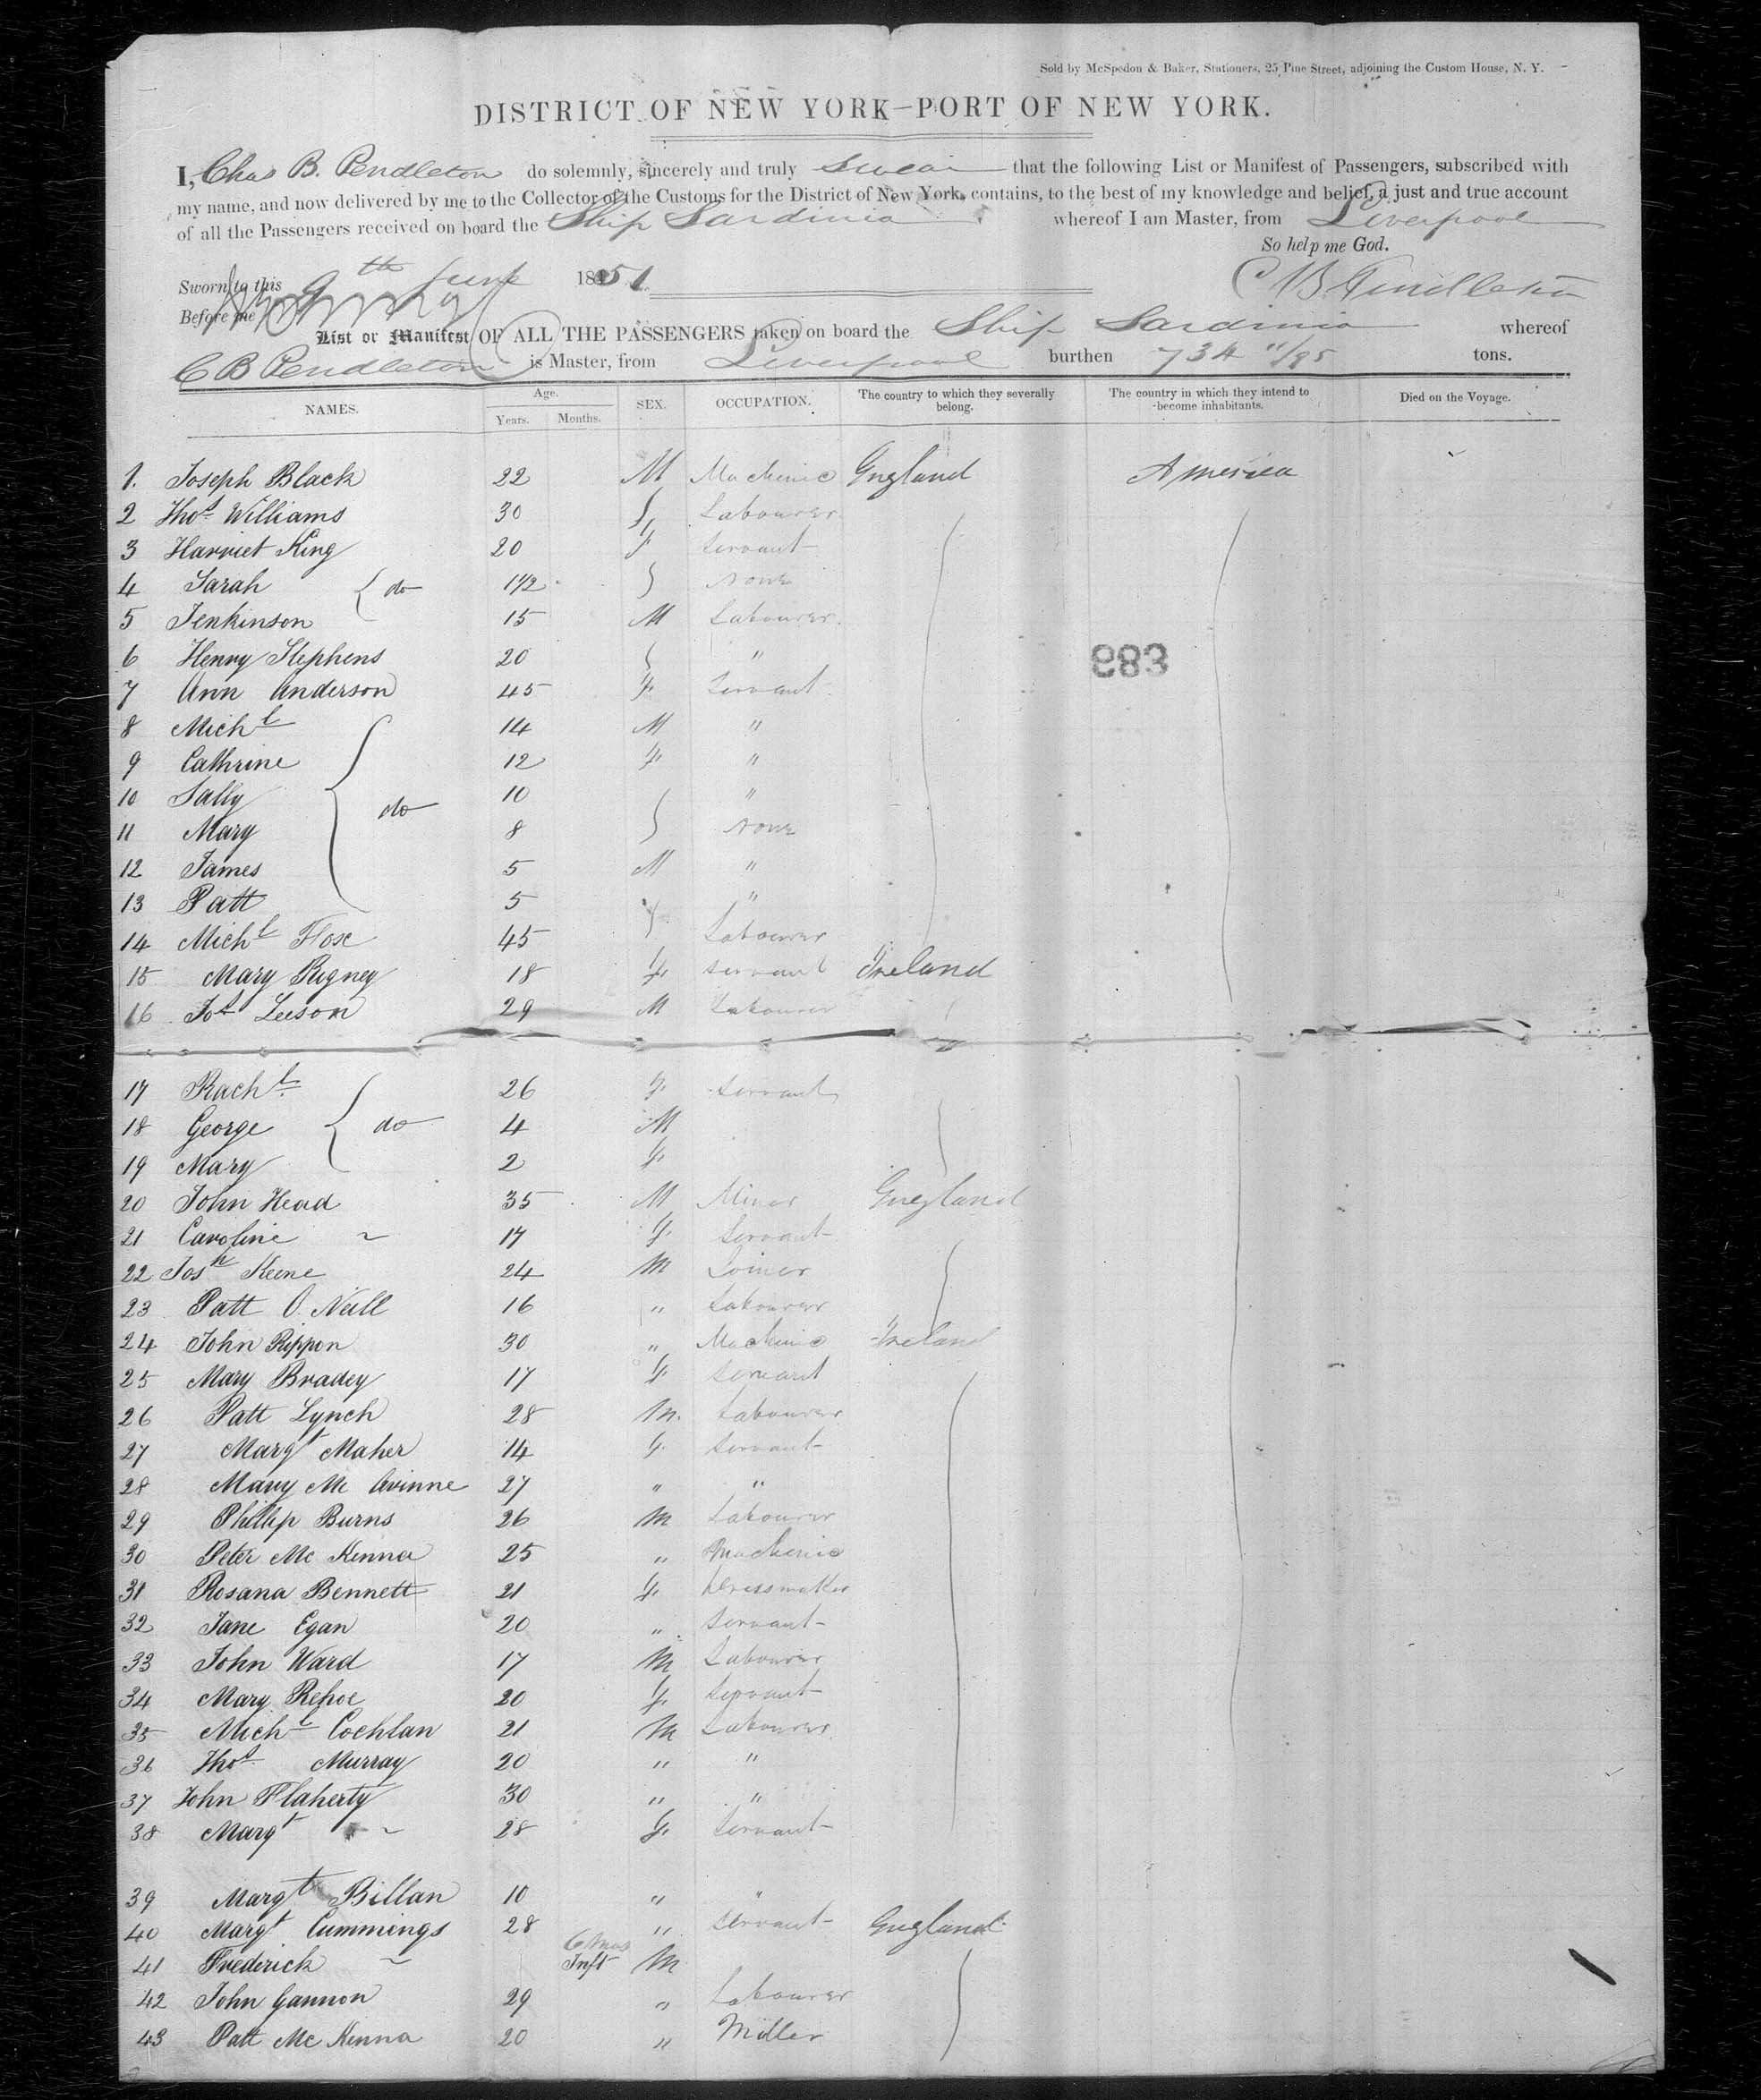 Sold by McSpedon & Baker, Stationers, 25 Pine Street, adjoining the Custom House, N. Y.
DISTRICT OF NEW YORK—PORT OF NEW YORK.
I, Chas B. Pendleton do solemnly, sincerely and truly swear that the following List or Manifest of Passengers, subscribed with
my name, and now delivered by me to the Collector of the Customs for the District of New York, contains, to the best of my knowledge and belief, a just and true account
of all the Passengers received on board the Ship Sardinia whereof I am Master, from Liverpool
So help me God.
Sworn to this 9th June 1851 C B Pendleton
Before me
List or Manifest OF ALL THE PASSENGERS taken on board the Ship Sardinia whereof
C B Pendleton is Master, from Liverpool burthen 734 11/95 tons.
NAMES. Age. Years. Months. SEX. OCCUPATION. The country to which they severally belong. The country in which they intend to become inhabitants. Died on the Voyage.
1. Joseph Black 22 M Mechenic England America
2 Thos Williams 30 Labourer
3 Harriet King 20 F Servant
4 Sarah do 1 1/2 None
5 Jenkinson 15 M Labourer
6 Henry Stephens 20 "
7 Ann Anderson 45 F Servant
8 Michl 14 M "
9 Cathrine 12 F "
10 Sally do 10 "
11 Mary 8 None
12 James 5 M "
13 Patt 5 "
14 Michl 45 Labourer
15 Mary Rigney 18 F Servant Ireland
16 Jos Leeson 29 M Labourer
17 Rachl 26 F Servant
18 George do 4 M
19 Mary 2 F
20 John Head 35 M Miner England
21 Caroline ~ 17 F Servant
22 Josh Keene 24 M Joiner
23 Patt O. Neill 16 " Labourer
24 John Rippon 30 " Mechenic Ireland
25 Mary Bradey 17 F Servant
26 Patt Lynch 28 M. Labourer
27 Margt Maher 14 F. Servant
28 Mary Mc Avinne 27 " "
29 Phillip Burns 26 M Labourer
30 Peter Mc Kenna 25 " Mechenic
31 Rosana Bennett 21 F. Dressmaker
32 Jane Egan 20 " Servant
33 John Ward 17 M Labourer
34 Mary Rehoe 20 F. Servant
35 Michl Cochlan 21 M Labourer
36 Thos Murray 20 " "
37 John Flaherty 30 " "
38 Margt ~ 28 F. Servant
39 Margt Billan 10 " "
40 Margt Cummings 28 " Servant England
41 Frederick ~ 6 mos Inft M
42 John Gannon 29 " Labourer
43 Patt Mc Kenna 20 " Miller
883